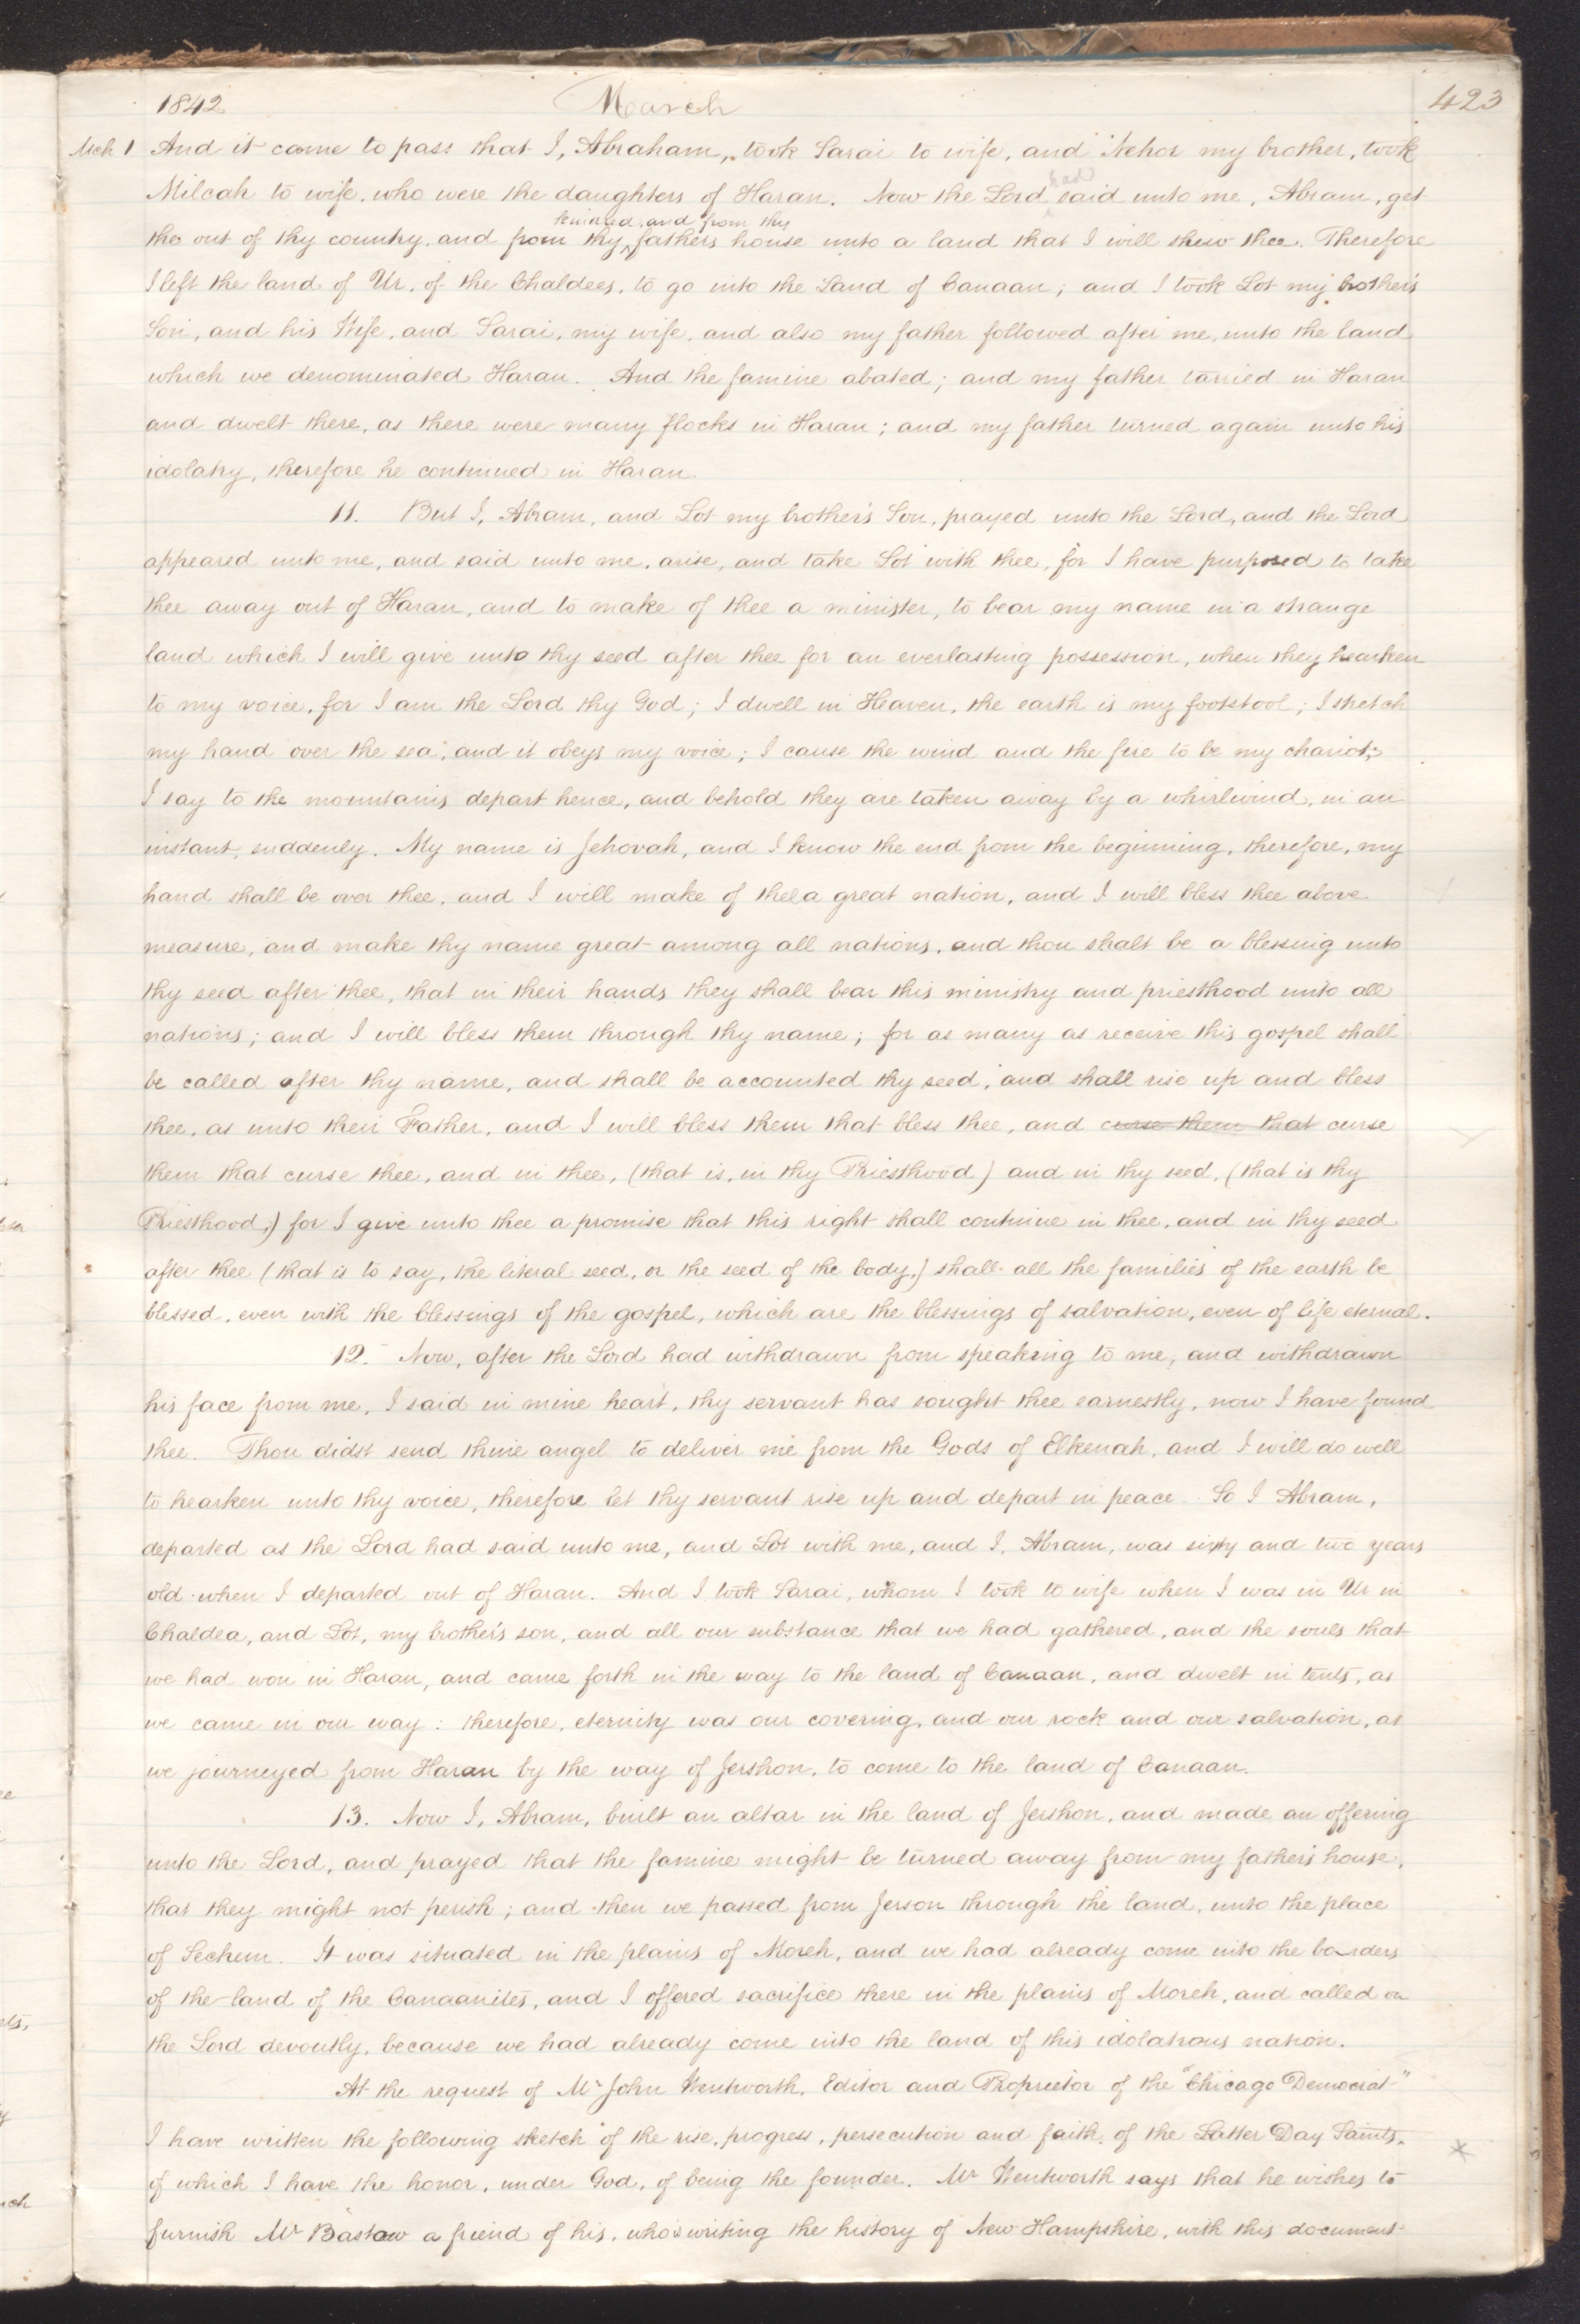 1842 March 423
Mch 1 And it came to pass that I, Abraham, took Sarai to wife, and Nehor my brother, took
Milcah to wife, who were the daughters of Haran. Now the Lord had said unto me, Abram, get
kindred, and from thy
thee out of thy country, and from thy fathers house unto a land that I will shew thee. Therefore
I left the land of Ur, of the Chaldees, to go into the Land of Canaan; and I took Lot my brother's
Son, and his Wife, and Sarai, my wife, and also my father followed after me, unto the land
which we denominated Haran. And the famine abated; and my father tarried in Haran
and dwelt there, as there were many flocks in Haran; and my father turned again unto his
idolatry, therefore he continued in Haran.
11. But I, Abram, and Lot my brother's Son, prayed unto the Lord, and the Lord
appeared unto me, and said unto me, arise, and take Lot with thee, for I have purposed to take
thee away out of Haran, and to make of thee a minister, to bear my name in a strange
land which I will give unto thy seed after thee for an everlasting possession, when they hearken
to my voice, for I am the Lord thy God; I dwell in Heaven, the earth is my footstool; I stretch
my hand over the sea, and it obeys my voice; I cause the wind and the fire to be my chariot;
I say to the mountains depart hence, and behold they are taken away by a whirlwind, in an
instant, suddenly. My name is Jehovah, and I know the end from the beginning, therefore, my
hand shall be over thee, and I will make of thee a great nation, and I will bless thee above
measure, and make thy name great among all nations, and thou shalt be a blessing unto
thy seed after thee, that in their hands they shall bear this ministry and priesthood unto all
nations; and I will bless them through thy name; for as many as receive this gospel shall
be called after thy name, and shall be accounted thy seed, and shall rise up and bless
thee, as unto their Father, and I will bless them that bless thee, and curse them that curse
them that curse thee, and in thee, (that is, in thy Priesthood) and in thy seed, (that is thy
Priesthood,) for I give unto thee a promise that this right shall continue in thee, and in thy seed
after thee (that is to say, the literal seed, or the seed of the body,) shall all the families of the earth be
blessed, even with the blessings of the gospel, which are the blessings of salvation, even of life eternal.
12. Now, after the Lord had withdrawn from speaking to me, and withdrawn
his face from me, I said in mine heart, thy servant has sought thee earnestly, now I have found
thee. Thou didst send thine angel to deliver me from the Gods of Elkenah, and I will do well
to hearken unto thy voice, therefore let thy servant rise up and depart in peace. So I Abram,
departed as the Lord had said unto me, and Lot with me, and I, Abram, was sixty and two years
old when I departed out of Haran. And I took Sarai, whom I took to wife when I was in Ur in
Chaldea, and Lot, my brother's son, and all our substance that we had gathered, and the souls that
we had won in Haran, and came forth in the way to the land of Canaan, and dwelt in tents, as
we came in our way: therefore, eternity was our covering, and our rock and our salvation, as
we journeyed from Haran by the way of Jershon, to come to the land of Canaan.
13. Now I, Abram, built an altar in the land of Jershon, and made an offering
unto the Lord, and prayed that the famine might be turned away from my father's house,
that they might not perish; and then we passed from Jerson through the land, unto the place
of Sechem. It was situated in the plains of Moreh, and we had already come into the borders
of the land of the Canaanites, and I offered sacrifice there in the plains of Moreh, and called on
the Lord devoutly, because we had already come into the land of this idolatrous nation.
At the request of Mr John Wentworth, Editor and Proprietor of the "Chicago Democrat"
I have written the following sketch of the rise, progress, persecution and faith, of the Latter Day Saints,
of which I have the honor, under God, of being the founder. Mr Wentworth says that he wishes to
furnish Mr Bastow a friend of his, who is writing the history of New Hampshire, with this document